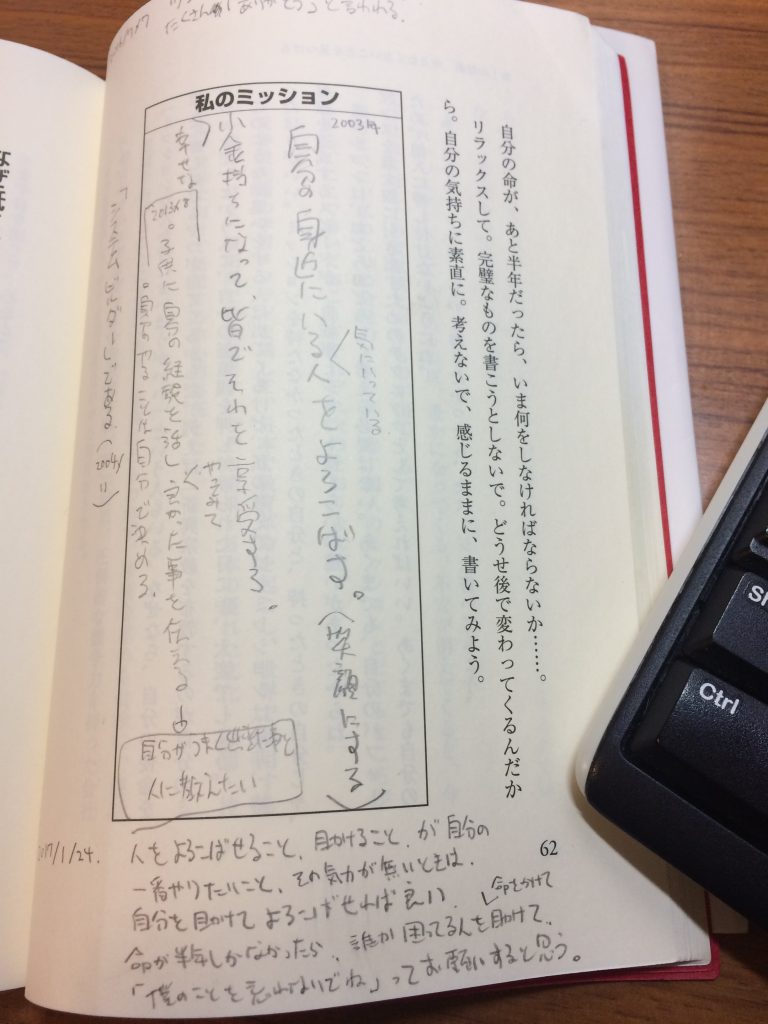 たくさん「ありがとう」と言われる。
自分の命が、あと半年だったら、いま何をしなければならないか……。
リラックスして。完璧なものを書こうとしないで。どうせ後で変わってくるんだか
ら。自分の気持ちに素直に。考えないで、感じるままに、書いてみよう。
私のミッション
2003年
自分の身近にいる人をよろこばす。(笑顔にする)
気にいっている。
小金持ちになって、皆でそれを享受する。
幸せな
2013.8
。子供に自分の経験を話し良かった事を伝える
やってみて
。自分のやることは自分で決める。
自分がうまく出来た事を
人に教えたい
「システムビルダー」である(2004/11)
62
2017/1/24.
人をよろこばせること、助けること、が自分の
一番やりたいこと、その気力が無いときは、
自分を助けてよろこばせれば良い、
命をかけて
命が半年しかなかったら、誰か困ってる人を助けて、
「僕のことを忘れないでね」ってお願いすると思う。
Sh
Ctrl